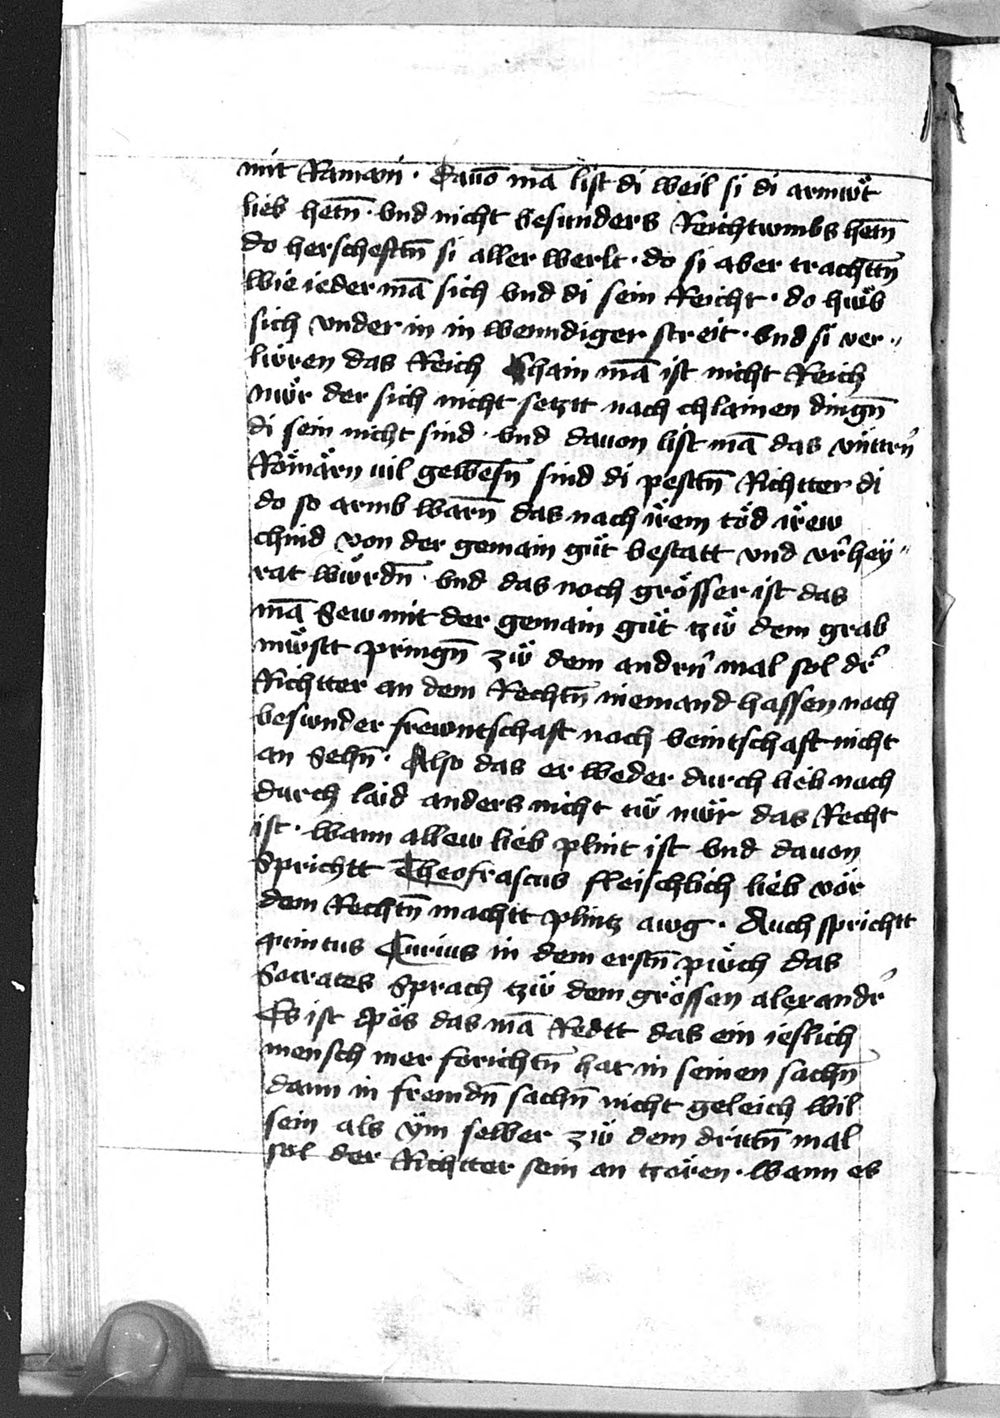 mit Ramani · Dauō mā list di weil si di armuͤt
lieb hetn̄ · vnd nicht besunders Reichtumbs hetn̄
do herscheftn̄ si aller werlt · do si aber trachttn̄
wie ieder mā sich vnd di sein Reicht · do huͤb
sich vnder in in wenndiger streit · vnd si ver〃
luren das Reich Chain mā ist nicht Reich
nuͤr der sich nicht setztt nach chlainen dingn̄
di sein nicht sind · vnd dauon list mā das vnttrn̄
Roͤmaͤrn uil gewesn̄ sind di pesttn̄ Richtter di
do so armb warn̄ das nach irem toͤd irew
chind von der gemain guͤt bestatt vnd vrhey〃
rat wuͤrdn̄ · vnd das noch groͤsser ist das
mā Sew mit der gemain guͤt tzuͤ dem grab
muͤstt pringn̄ zuͤ dem andrn̄ mal sol dr̄
Richtter an dem Rechtn̄ niemand hassen noch
besunder frewntschaft noch veintschaft nicht
an Sehn̄ · Also das er weder durch lieb noch
durch laid anders nicht tuͤ nuͤr das Recht
ist · wann allew lieb plint ist vnd dauon
Sprichtt Theofrascus fleischlich lieb voͤr
dem Rechtn̄ machtt plintz awg · Auch sprichtt
quintus Curius in dem erstn̄ puͤch das
Socrates Sprach tzuͤ dem groͤssen alexandr̄
Es ist poͤs das mā Redtt das ein ieslich
mensch mer forichtn̄ hat in seinen sachn̄
dann in fremdn̄ sachn̄ nicht geleich wil
sein als ÿm selber zuͤ dem drittn̄ mal
sol der Richtter sein an tzoren · wann es